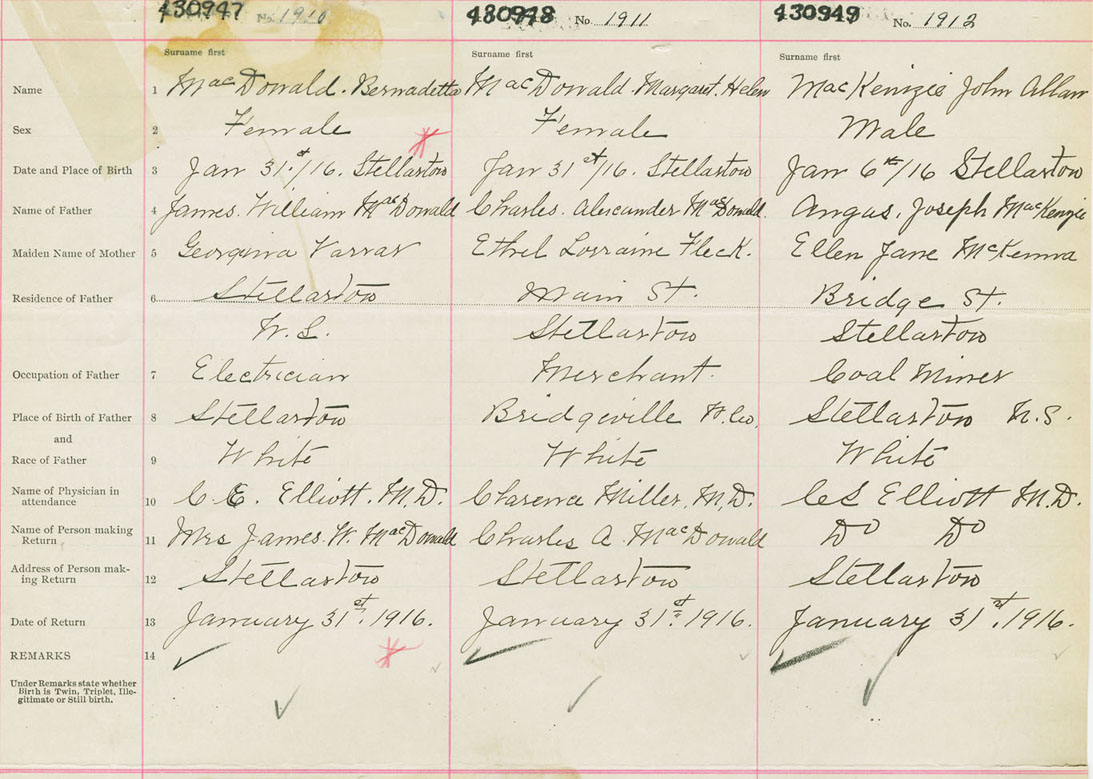 430947 No. 1910 430948 No. 1911 430949 No. 1912
Surname first Surname first Surname first
Name 1 MacDonald. Bernadette MacDonald. Margaret. Helen MacKenzie John Allan
Sex 2 Female Female Male
Date and Place of Birth 3 Jan 31st/16. Stellarton Jan 31st/16. Stellarton Jan 6th/16 Stellarton
Name of Father 4 James. William MacDonald Charles. Alexander MacDonald Angus. Joseph MacKenzie
Maiden Name of Mother 5 Georgina Varvar Ethel Lorraine Fleck. Ellen Jane McKenna
Residence of Father 6 Stellarton Main St. Bridge St.
N.S. Stellarton Stellarton
Occupation of Father 7 Electrician Merchant. Coal Miner
Place of Birth of Father 8 Stellarton Bridgeville Stellarton N.S.
and
Race of Father 9 White White White
Name of Physician in
attendance 10 C E. Elliott. M.D. Clarence Miller. M.D. Elliott M.D.
Name of Person making
Return 11 Mrs James. W. MacDonald Charles A. MacDonald Do Do
Address of Person mak-
ing Return 12 Stellarton Stellarton Stellarton
Date of Return 13 January 31st. 1916. January 31st. 1916. January 31st. 1916.
REMARKS 14
Under Remarks state whether
Birth is Twin, Triplet, Ille-
gitimate or Still birth.